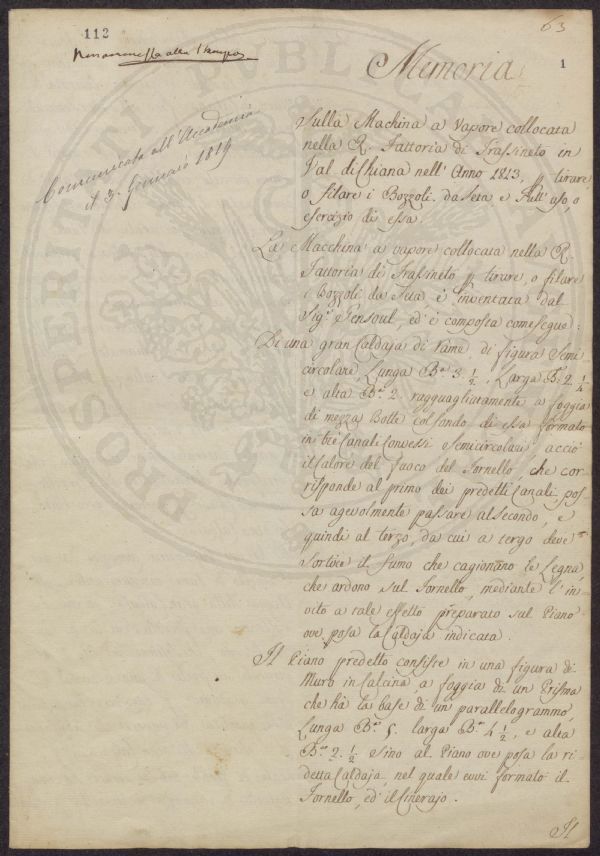 112
63
1
Non ammessa alla Stampa
Memoria
Comunicata all'Accademia
il 3. Gennaio 1819
Sulla Machina a Vapore collocata
nella R. Fattoria di Frassineto in
Val di Chiana nell'Anno 1813. p tirare
o filare i Bozzoli da Seta e Sull'uso, o
esercizio di essa.
La Macchina a vapore collocata nella R.
Fattoria di Frassineto p tirare, o filare
i Bozzoli da Seta è inventata dal
Sigr Gensoul, ed è composta come segue:
Di una gran Caldaja di Rame, di figura Semi
circolare, Lunga Ba 3 ½. Larga B. 2 ¼
e alta Ba 2. ragguagliatamente a foggia
di mezza Botte col fondo di essa formato
in trè Canali Convessi Semicircolari, acciò
il Calore del fuoco del Fornello, che cor-
risponde al primo dei predetti Canali, pos-
sa agevolmente passare al secondo, e
quindi al terzo, da cui a tergo deve
Sortire il fumo che cagionano le Legna,
che ardono sul Fornello, mediante l'in-
vito a tale effetto preparato sul Piano
ove posa la Caldaja indicata.
Il Piano predetto consiste in una figura di
Muro in Calcina, a foggia di un Prisma
che hà la base di un parallelogrammo,
Lunga Ba 5. larga Ba 4 ½, e alta
Ba 2. ½ e sino al Piano ove posa la ri-
detta Caldaja, nel quale evvi formato il
Fornello, ed il Cinerajo.
Il
PROSPERITATI PUBLICAE